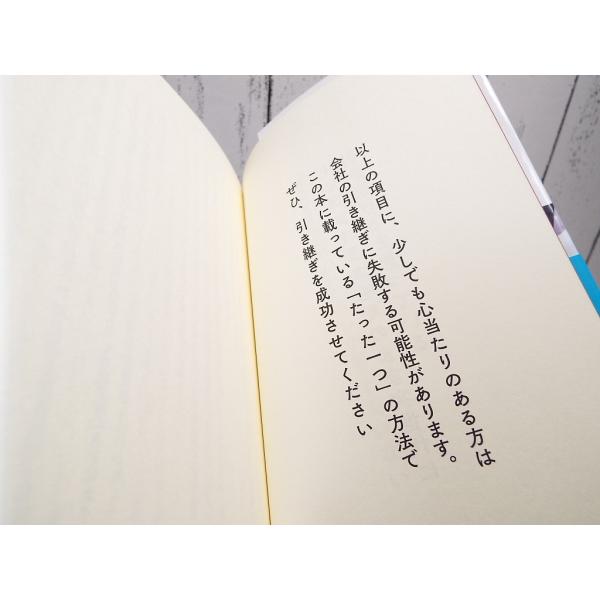 以上の項目に、少しでも心当たりのある方は
会社の引き継ぎに失敗する可能性があります。
この本に載っている「たった一つ」の方法で
ぜひ、引き継ぎを成功させてください